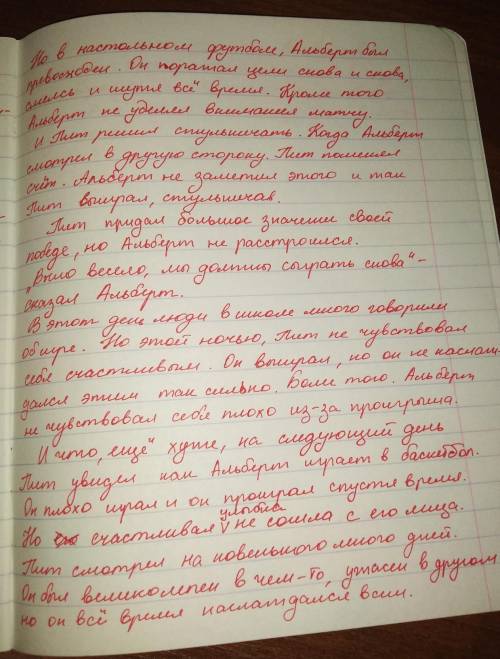 Но в настольном футболе, Альберт был
превосходен. Он поражал цели снова и снова,
смеясь и шутя всё время. Кроме того
Альберт не уделял внимания матчу.
И Пит решил стульничать. Когда Альберт
смотрел в другую сторону. Пит поменял
счёт. Альберт не заметил этого и так
Пит выиграл, стульничав.
Пит придал большое значение своей
победе, но Альберт не расстроился.
„Было весело, мы должны сыграть снова“ -
сказал Альберт.
В этот день люди в школе много говорили
об игре. Но этой ночью, Пит не чувствовал
себя счастливым. Он выиграл, но он не наслаж-
дался этим так сильно. Боли того. Альберт
не чувствовал себя плохо из-за проигрыша.
И что, ещё" хуже, на следующий день
Пит увидел как Альберт играет в баскетбол.
Он плохо играл и он проиграл спустя время.
Но счастливая улыбка не сошла с его лица.
Пит смотрел на новенького много дней.
Он был великолепен в чём-то, ужасен в другом
но он всё время наслаждался всем.